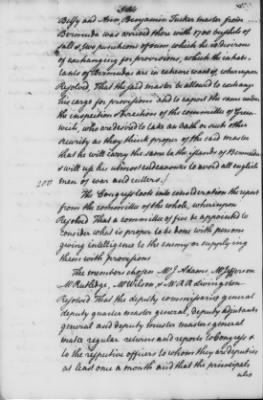 Betsy and Ann, Benjamin Tucker master from
Bermuda was arrived there with 1700 bushels of
salt & two puncheons of rum which he is desirous
of exchanging for provisions, which the inhabi-
tants of Bermudas are in extreme want of, whereupon
Resolved, That the said master be allowed to exchange
his cargo for provisions and to export the same under
the inspection & direction of the committee of Green-
wich, who are desired to take an oath or such other
security as they think proper of the said master
that he will carry the same to the islands of Bermudas
& will use his utmost endeavours to avoid all english
men of war and cutters.
The Congress took into consideration the report
from the committee of the whole, whereupon
Resolved That a committee of five be appointed to
consider what is proper to be done with persons
giving intelligence to the enemy or supplying
them with provisions
The members chosen Mr J. Adams, Mr Jefferson
Mr Rutledge, Mr Wilson & Mr R. R. Livingston
Resolved That the deputy commissaries general
deputy quarter master general, deputy adjutants
general and deputy muster masters general
make regular returns and reports to Congress &
to the respective officers to whom they are deputies
at least once a month and that the principals
also